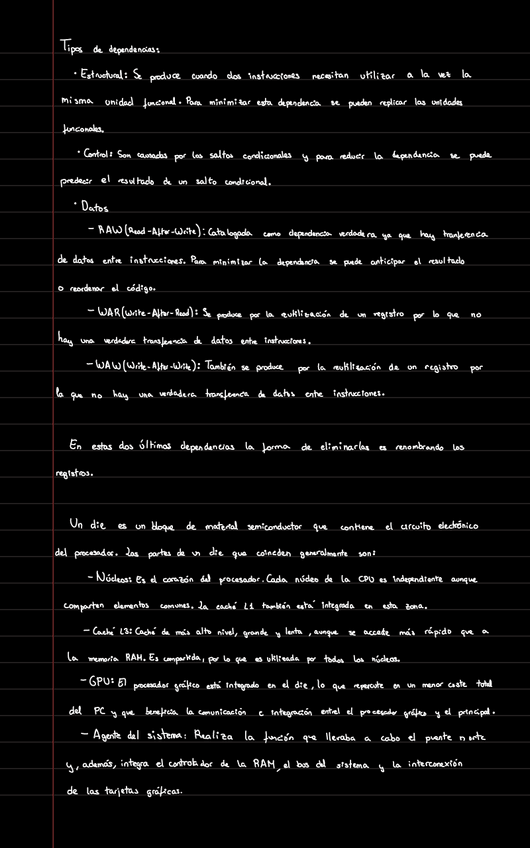 Tipos de dependencias:
· Estructural: Se produce cuando dos instrucciones necesitan utilizar a la vez la
misma unidad funcional. Para minimizar esta dependencia se pueden replicar las unidades
funcionales.
· Control: Son causadas por los saltos condicionales y para reducir la dependencia se puede
predecir el resultado de un salto condicional.
· Datos
- RAW (Read-After-Write): Catalogada como dependencia verdadera ya que hay tranferencia
de datos entre instrucciones. Para minimizar la dependencia se puede anticipar el resultado
o reordenar el código.
- WAR (Write-After-Read): Se produce por la reutilización de un registro por lo que no
hay una verdadera transferencia de datos entre instrucciones.
- WAW (Write-After-Write): También se produce por la reutilización de un registro por
lo que no hay una verdadera transferencia de datos entre instrucciones.
En estas dos últimas dependencias la forma de eliminarlas es renombrando los
registros.
Un die es un bloque de material semiconductor que contiene el circuito electrónico
del procesador. Las partes de un die que coinciden generalmente son:
- Núcleos: Es el corazón del procesador. Cada núcleo de la CPU es independiente aunque
comparten elementos comunes. La caché L1 también está integrada en esta zona.
- Caché L3: Caché de más alto nivel, grande y lenta, aunque se accede más rápido que a
la memoria RAM. Es compartida, por lo que es utilizada por todos los núcleos.
- GPU: El procesador gráfico está integrado en el die, lo que repercute en un menor coste total
del PC y que beneficia la comunicación e integración entre el procesador gráfico y el principal.
- Agente del sistema: Realiza la función que llevaba a cabo el puente norte
y, además, integra el controlador de la RAM, el bus del sistema y la interconexión
de las tarjetas gráficas.